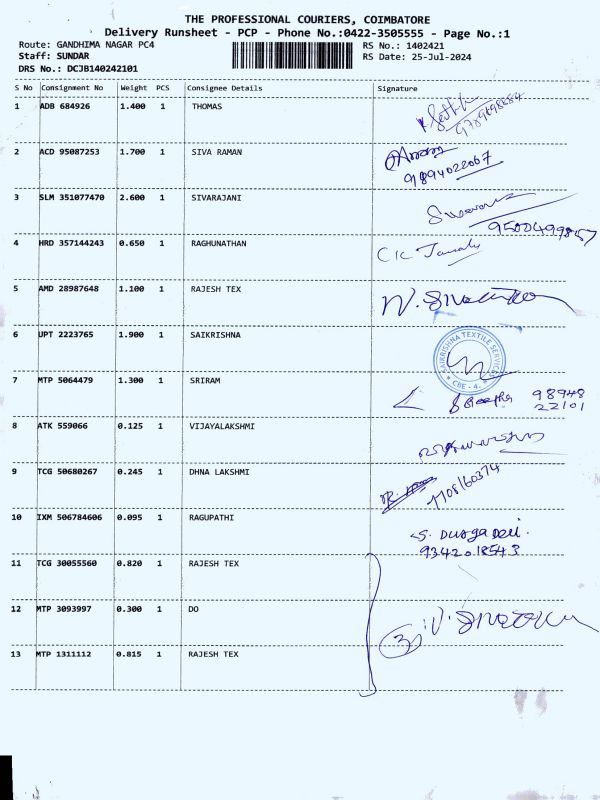 THE PROFESSIONAL COURIERS, COIMBATORE
Delivery Runsheet - PCP - Phone No.:0422-3505555 - Page No.:1
Route: GANDHIMA NAGAR PC4 RS No.: 1402421
Staff: SUNDAR RS Date: 25-Jul-2024
DRS No.: DCJB140242101
S No Consignment No Weight PCS Consignee Details Signature
1 ADB 684926 1.400 1 THOMAS
2 ACD 95087253 1.700 1 SIVA RAMAN
9894022067
3 SLM 351077470 2.600 1 SIVARAJANI
4 HRD 357144243 0.650 1 RAGHUNATHAN
5 AMD 28987648 1.100 1 RAJESH TEX
6 UPT 2223765 1.900 1 SAIKRISHNA
SAIKRISHNA TEXTILE SERVICES
CBE - 4.
7 MTP 5064479 1.300 1 SRIRAM
98948
22101
8 ATK 559066 0.125 1 VIJAYALAKSHMI
9 TCG 50680267 0.245 1 DHNA LAKSHMI
10 IXM 506784606 0.095 1 RAGUPATHI
S. Durga Devi.
9342018543
11 TCG 30055560 0.820 1 RAJESH TEX
12 MTP 3093997 0.300 1 DO
3
13 MTP 1311112 0.815 1 RAJESH TEX